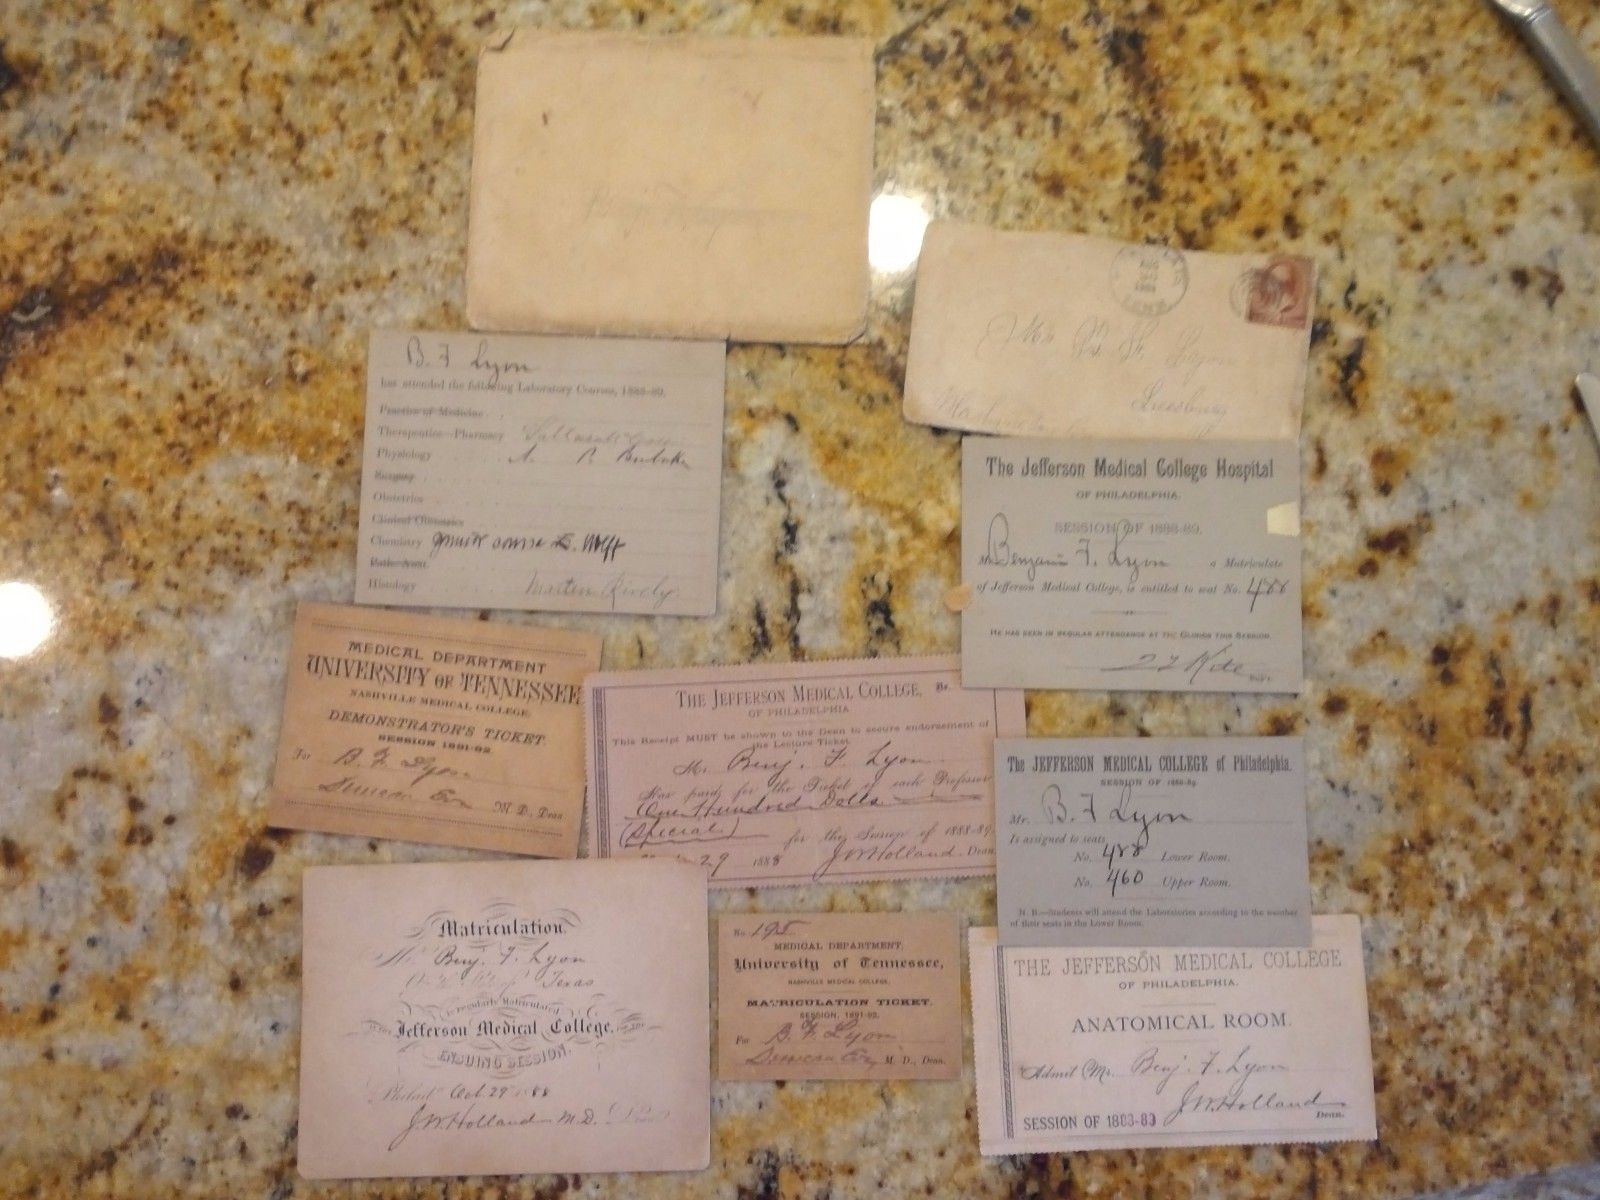 B. F Lyon
has attended the following Laboratory Courses, 1888-89.
Practice of Medicine
Therapeutics—Pharmacy
Physiology
Surgery
Obstetrics
Clinical Obstetrics
Chemistry
Histology
The Jefferson Medical College Hospital
OF PHILADELPHIA.
SESSION OF 1888-89.
Mr Benjamin F. Lyon a Matriculate
of Jefferson Medical College, is entitled to seat No. 488
HE HAS BEEN IN REGULAR ATTENDANCE AT THE CLINICS THIS SESSION.
MEDICAL DEPARTMENT
UNIVERSITY OF TENNESSEE
NASHVILLE MEDICAL COLLEGE.
DEMONSTRATOR'S TICKET.
SESSION 1891-92.
For B. F. Lyon
M. D., Dean
THE JEFFERSON MEDICAL COLLEGE,
OF PHILADELPHIA
This Receipt MUST be shown to the Dean to secure endorsement of
the Lecture Ticket
Mr. Benj. F. Lyon
Has paid for the Ticket of each Professor
One Hundred Dolls.
(Special) for the Session of 1888-89.
29 1888 J W Holland Dean
The JEFFERSON MEDICAL COLLEGE of Philadelphia.
SESSION OF 1888-89
Mr. B. F Lyon
Is assigned to seats
No. 488 Lower Room.
No. 460 Upper Room.
N. B.—Students will attend the Laboratories according to the number
of their seats in the Lower Room.
Matriculation.
Mr. Benj. F. Lyon
Of the State of Texas
is regularly Matriculated
Jefferson Medical College,
ENSUING SESSION.
Oct 29 1888
J W Holland M.D.
No. 195
MEDICAL DEPARTMENT.
University of Tennessee,
NASHVILLE MEDICAL COLLEGE.
MATRICULATION TICKET.
SESSION, 1891-92.
For B. F. Lyon
M. D., Dean.
THE JEFFERSON MEDICAL COLLEGE
OF PHILADELPHIA.
ANATOMICAL ROOM.
Admit Mr. Benj. F. Lyon
J W Holland
Dean.
SESSION OF 1888-89